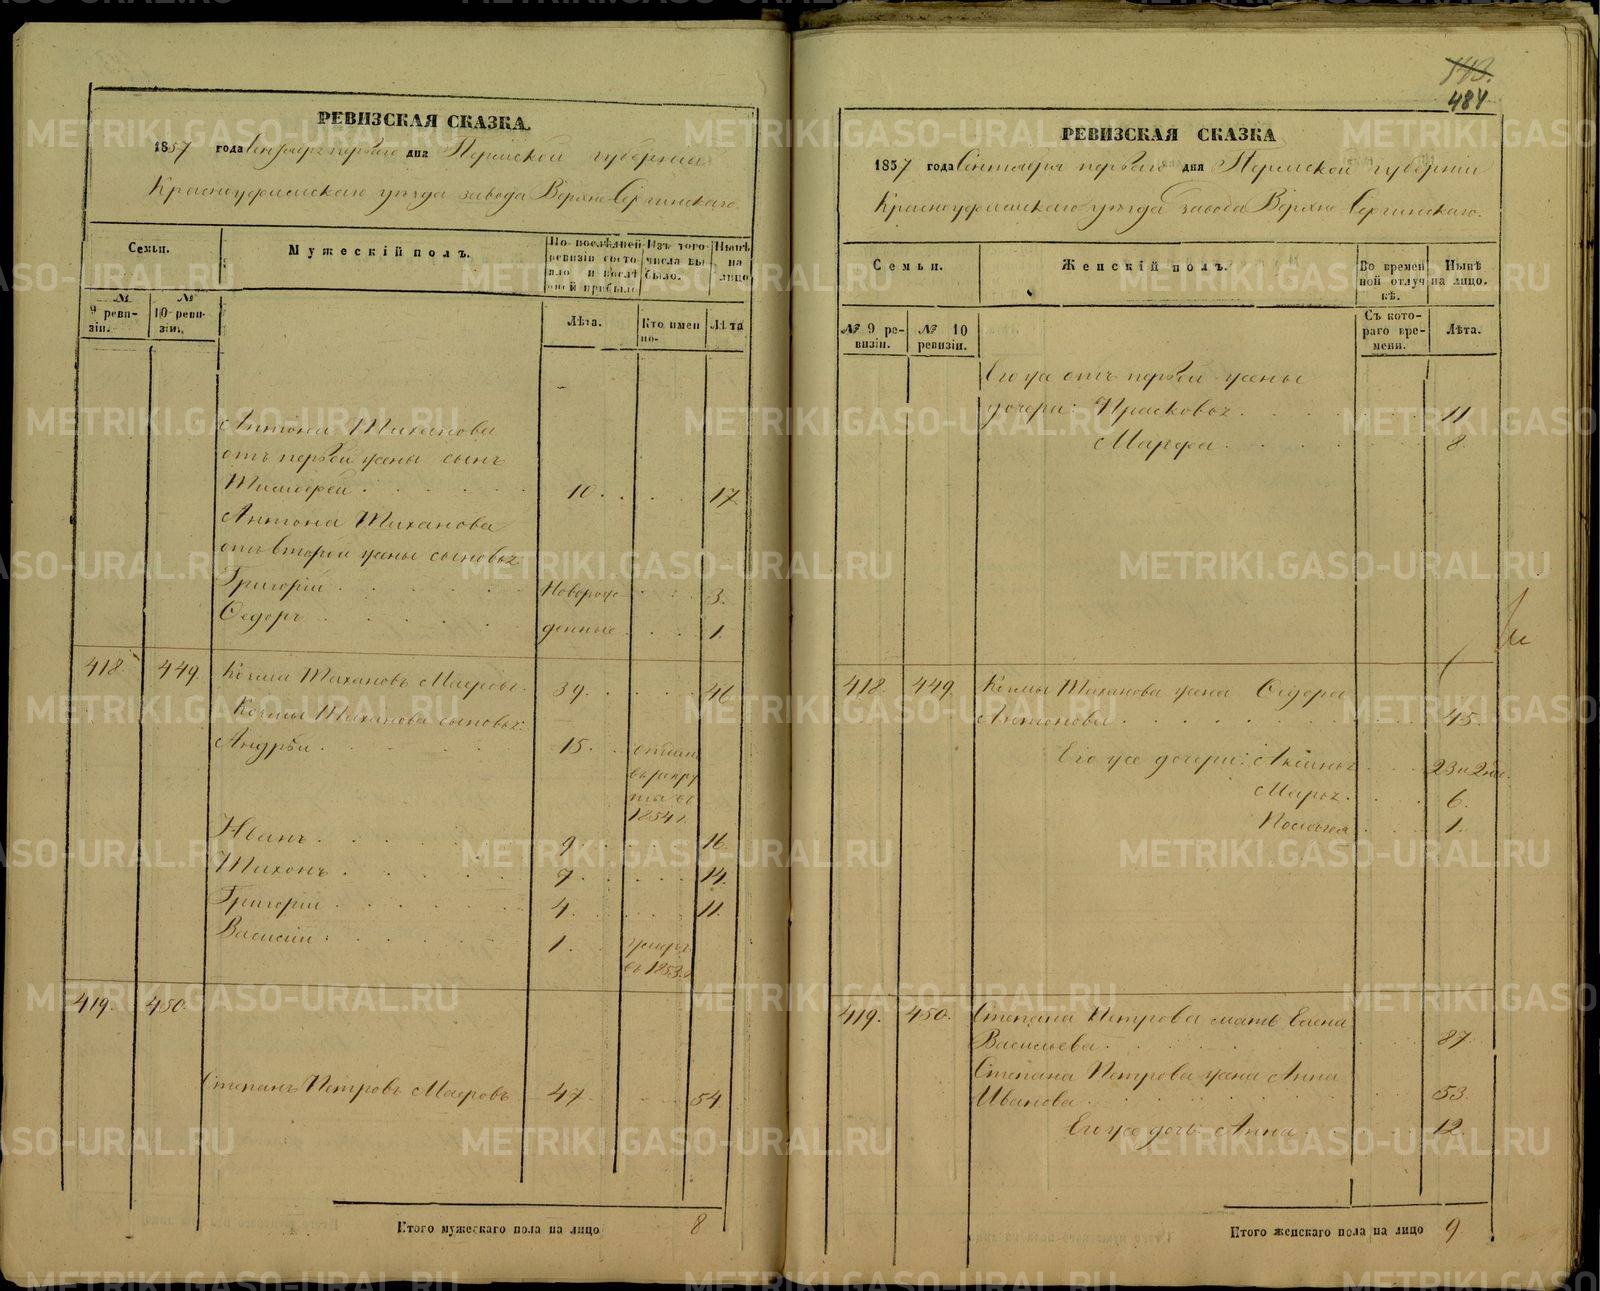 РЕВИЗСКАЯ СКАЗКА.
1857 года Сентября перваго дня Пермской губерніи
Красноуфимскаго уѣзда завода Верхне-Сергинскаго.
Семьи.
Мужескій полъ.
По послѣдней ревизіи состояло и послѣ оной прибыло
Изъ того числа выбыло.
Нынѣ на лицо
№ 9 ревизіи.
№ 10 ревизіи.
Лѣта.
Кто именно.
Лѣта
Антона Тиханова
отъ первой жены сынъ
Тимофей 10. 17.
Антона Тиханова
отъ второй жены сыновья
Григорій Новорож 3.
Ѳедоръ денные 1.
418. 449. Козма Тихановъ Маеровъ. 39. 46
Козмы Тиханова сыновья:
Андрей 15.
въ рекру
1854 г.
Иванъ 9. 16
Тихонъ 7. 14.
Григорій 4. 11.
Василій 1. умеръ
въ 1853 г.
419. 450.
Степанъ Петровъ Маеровъ 47. 54.
Итого мужескаго пола на лицо 8
113.
484
РЕВИЗСКАЯ СКАЗКА
1857 года Сентября перваго дня Пермской губерніи
Красноуфимскаго уѣзда завода Верхне Сергинскаго.
Семьи.
Женскій полъ.
Во временной отлучкѣ.
Нынѣ на лицо.
№ 9 ревизіи.
№ 10 ревизіи.
Съ котораго времени.
Лѣта.
Его же отъ первой жены
дочери: Прасковья 11
Марфа 8.
418 449. Козмы Тиханова жена Ѳедора
Антонова 45.
Его же дочери: Аксинья 23
Марья. 6.
Пелагея 1.
419. 450. Степана Петрова мать Елена
Васильева. 87.
Степана Петрова жена Анна
Иванова 53.
Его же дочь Анна 12
Итого женскаго пола на лицо 9.
METRIKI.GASO-URAL.RU